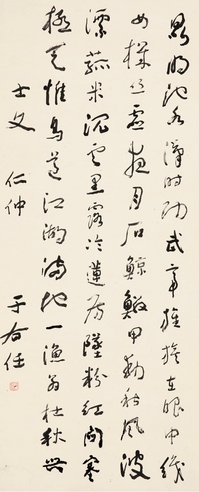 昆明池水漢時功武帝旌旗在眼中織
女機絲虛夜月石鯨鱗甲動秋風波
漂菰米沉雲黑露冷蓮房墜粉紅關塞
極天惟鳥道江湖滿地一漁翁杜秋興
士文 仁仲 于右任